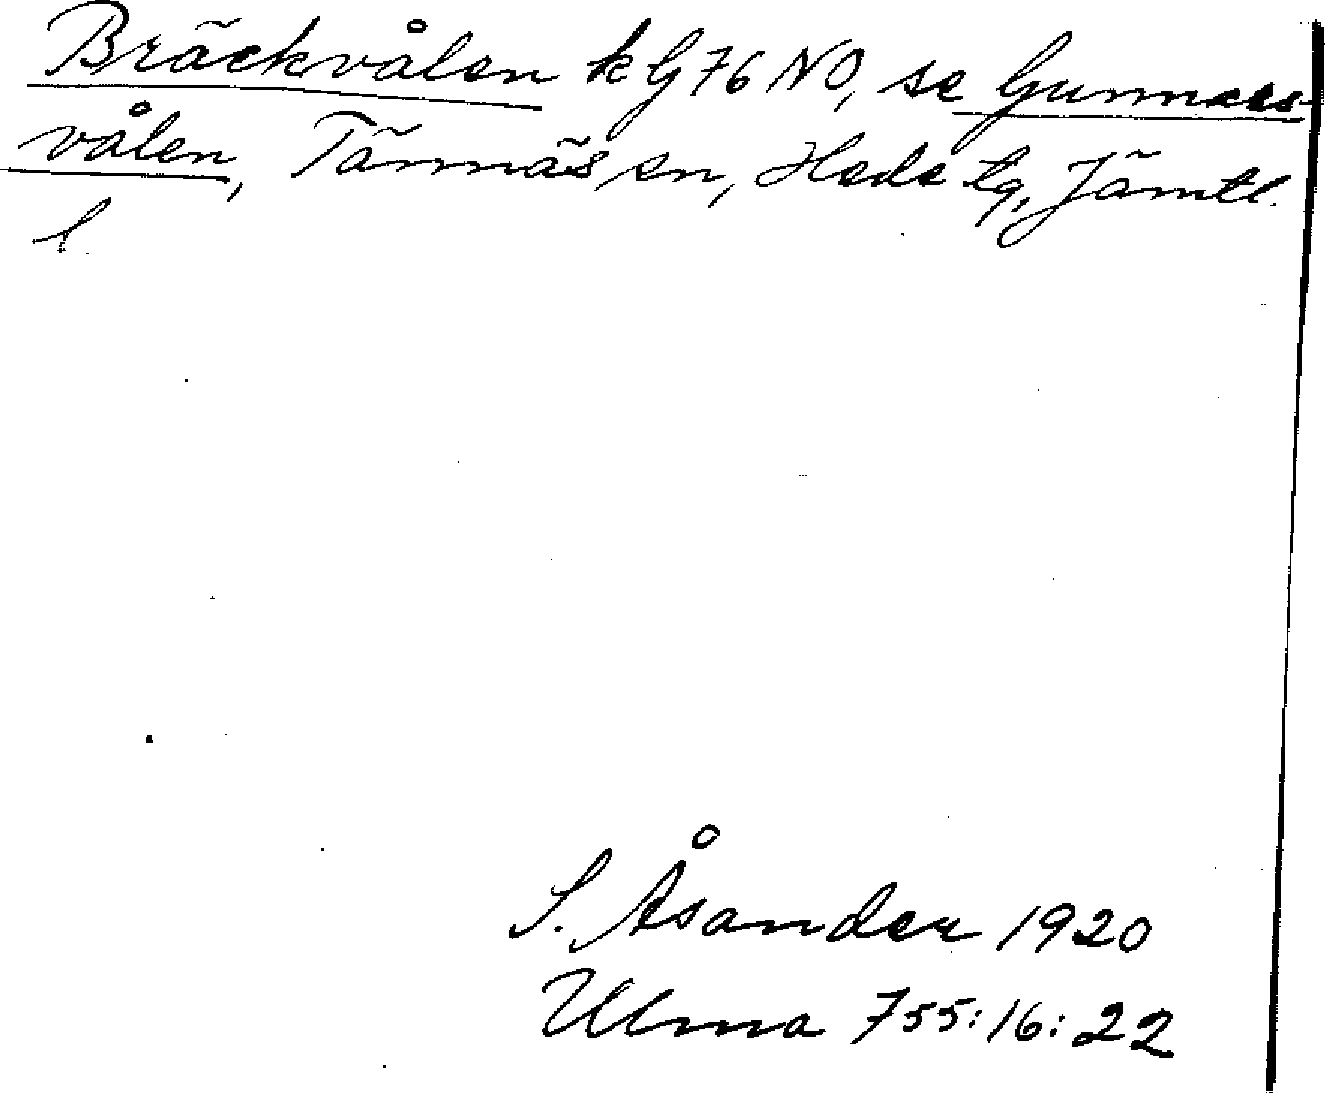 Bräckvålen k G 76 NO, se Gunnars-
vålen, Tännäs sn, Hede tg, Jämtl.
l
S. Åsander 1920
Ulma 755:16:22